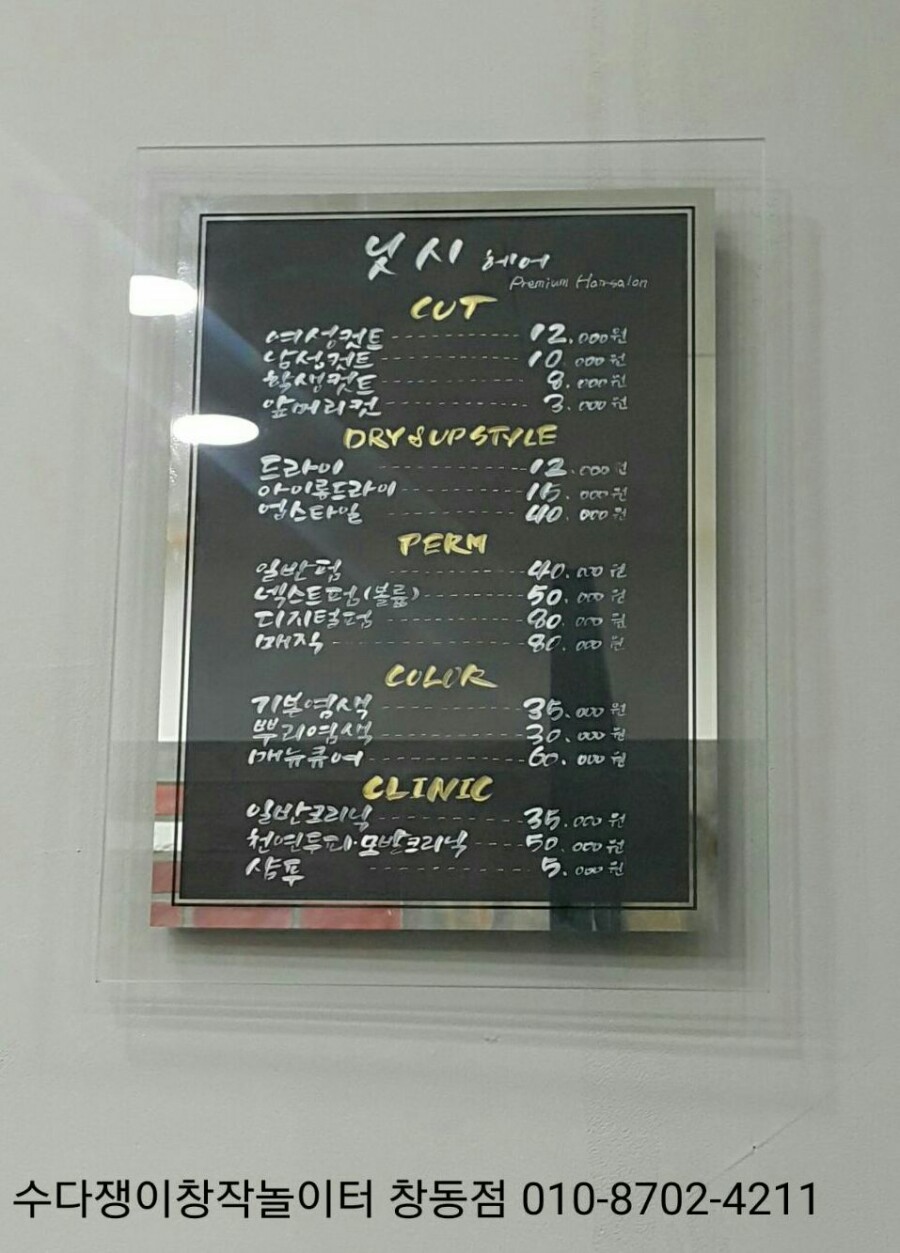 낮시 헤어
Premium Hairsalon
CUT
여성컷트 12.000원
남성컷트 10.000원
학생컷트 8.000원
앞머리컷 3.000원
DRY & UP STYLE
드라이 12.000원
아이롱드라이 15.000원
업스타일 40.000원
PERM
일반펌 40.000원
넥스트펌(볼륨) 50.000원
디지털펌 80.000원
매직 80.000원
COLOR
기본염색 35.000원
뿌리염색 30.000원
매뉴큐어 60.000원
CLINIC
일반크리닉 35.000원
천연두피·모발크리닉 50.000원
샴푸 5.000원
수다쟁이창작놀이터 창동점 010-8702-4211